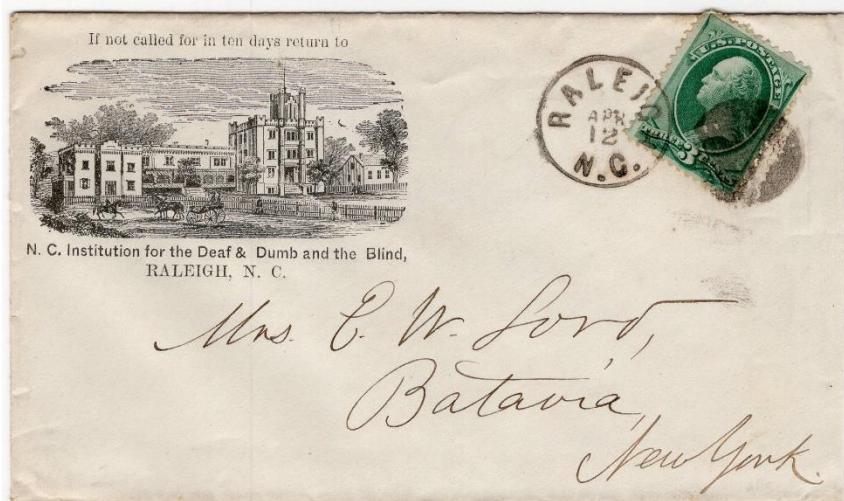 If not called for in ten days return to
N. C. Institution for the Deaf & Dumb and the Blind,
RALEIGH, N. C.
RALEIGH
APR
12
N.C.
U.S. POSTAGE
3
Mrs. C. W. Lord,
Batavia,
New York.